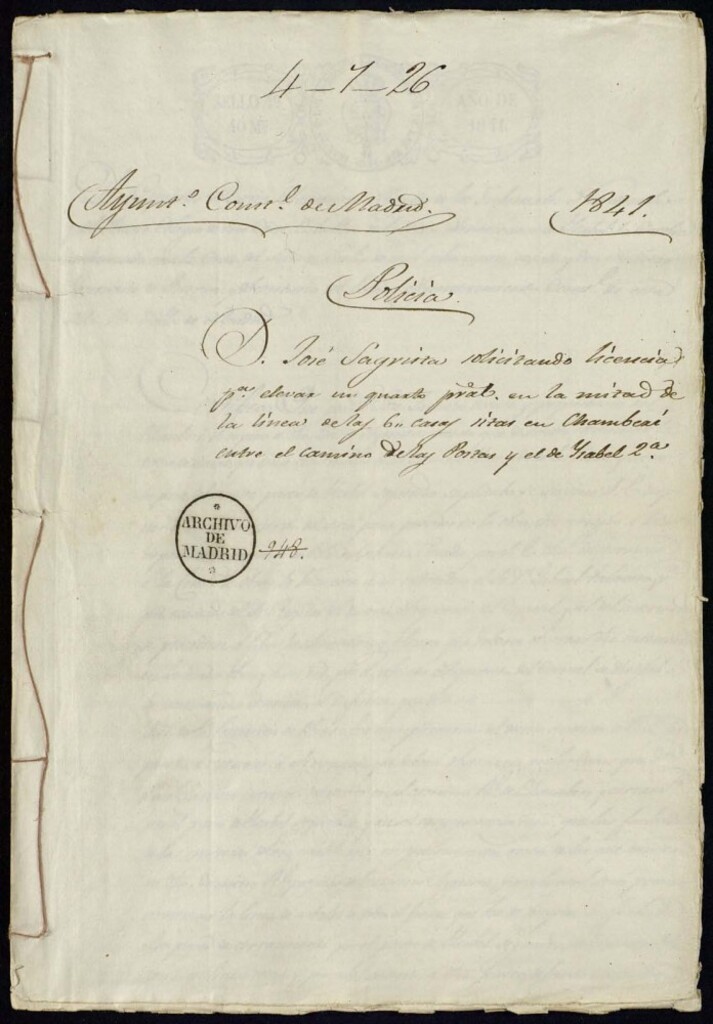 4-1-26
Ayunt.º Const.l de Madrid. 1841.
Policia.
D. José Sagrista solicitando licencia
p.ª elevar un quarto pral. en la mitad de
la linea de las 6 casas sitas en Chamberi
entre el camino de las Postas y el de Ysabel 2.ª
ARCHIVO
DE
MADRID 948.